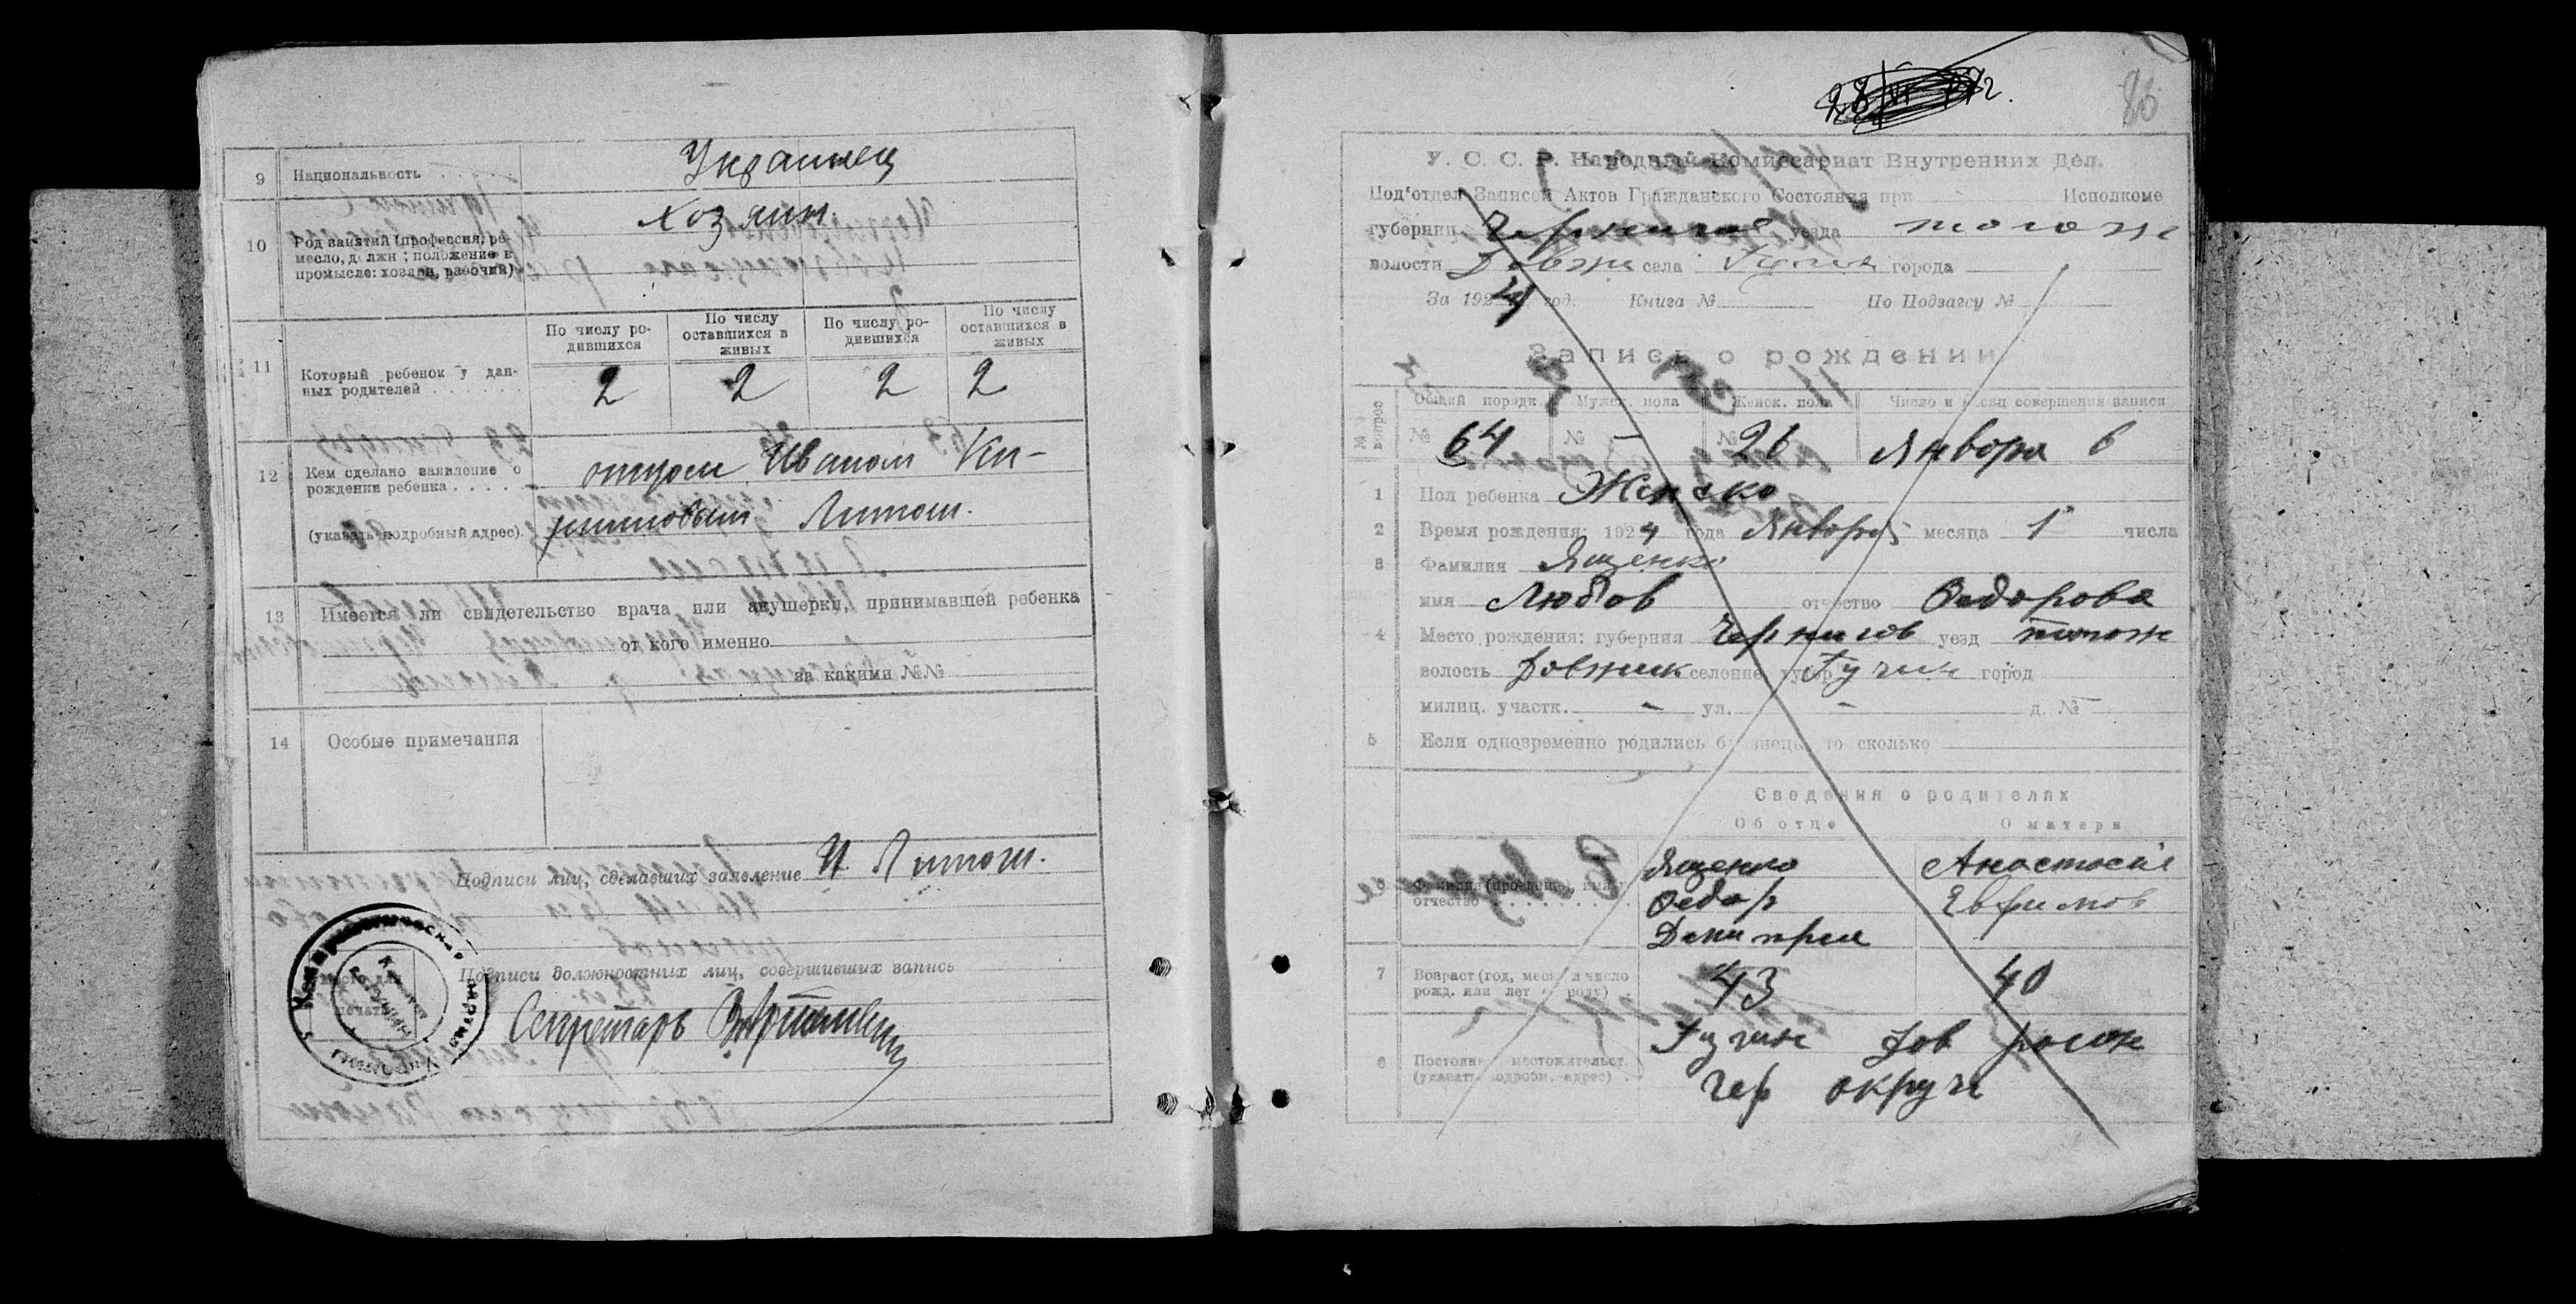 9 Национальность Украинец
10 Род занятий (профессия, ре-
месло, должн; положение в
промысле: хозяин, рабочий)
Хозяин.
11 Который ребенок у дан-
ных родителей
По числу ро-
дившихся
По числу
оставшихся в
живых
По числу ро-
дившихся
По числу
оставшихся в
живых
2 2 2 2
12 Кем сделано заявление о
рождении ребенка
(указать подробный адрес).
отцом Иваном
Литош.
13 Имеется ли свидетельство врача или акушерки, принимавшей ребенка
от кого именно
за какими №№
14 Особые примечания
Подписи лиц, сделавших заявление И. Литош.
Подписи должностных лиц, совершивших запись
Секретарь
86
У. С. С. Р. Народный Комиссариат Внутренних Дел.
Под'отдел Записей Актов Гражданского Состояния при Исполкоме
губернии Чернигов уезда тогож
волости села Гучин города
За 1924 год. Книга № По Подзагсу №
Запись о рождении
№№ вопрос
Общий порядк. Мужск. пола Женск. пола Число и месяц совершения записи
№ 64 № – № 26 Января 6
1 Пол ребенка Женско
2 Время рождения: 1924 года Января месяца 1 числа
3 Фамилия Ященко
имя Любов отчество Федорова
4 Место рождения: губерния Чернигов уезд тогож
волость Довжик селение, хутор Гучин город
милиц. участк. – ул. – д. №
5 Если одновременно родились близнецы, то сколько
Сведения о родителях
Об отце О матери
6 Фамилия (прозвище), имя
отчество
Ященко
Федор
Дмитриев
Анастасия
Евфимов
7 Возраст (год, месяц и число
рожд. или лет от роду)
43 40
8 Постоянное местожительст.
(указать подробн. адрес)
Гучин Дов район
Чер округи